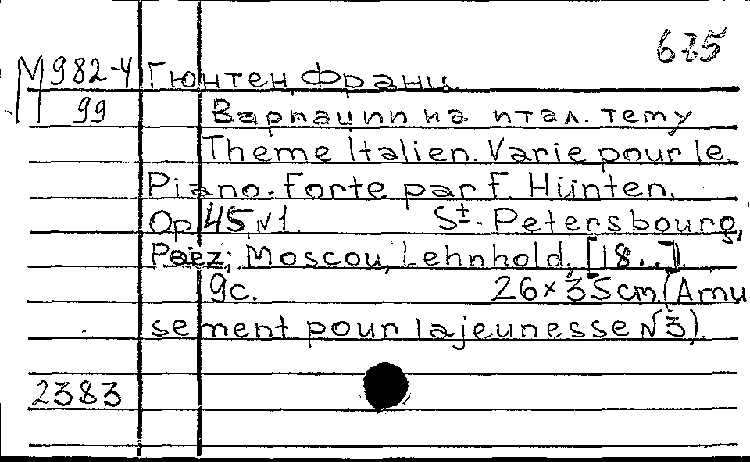 625
М982-4 Гюнтен, Франц.
99 Вариации на итал. тему
Theme Italien. Varie pour le
Piano-Forte par F. Hünten.
Op. 45, N1. St.-Petersbourg,
Paez; Moscou, Lehnhold, [18..]
9c. 26×35cm. (Amu
sement pour la jeunesse N3).
2383